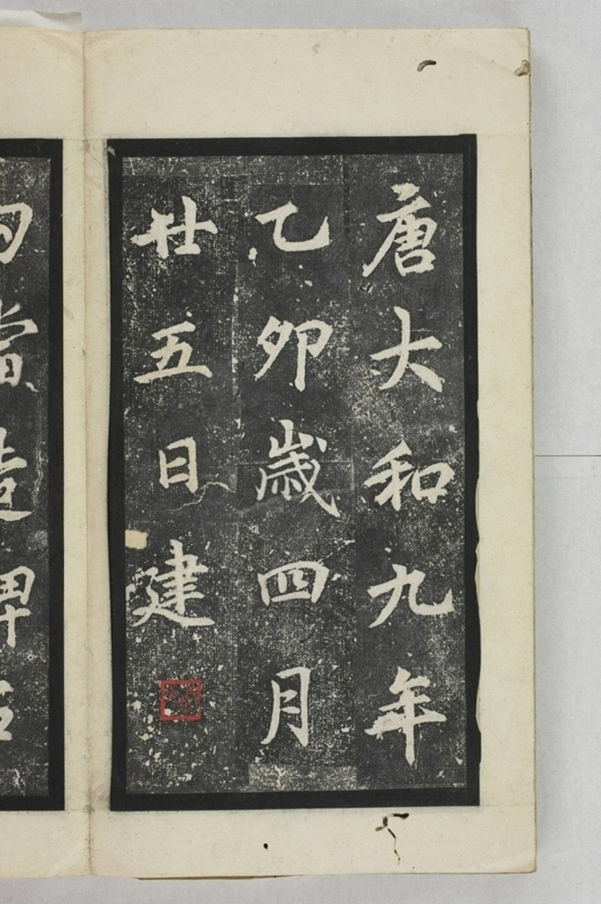 唐大和九年
乙卯歲四月
廿五日建